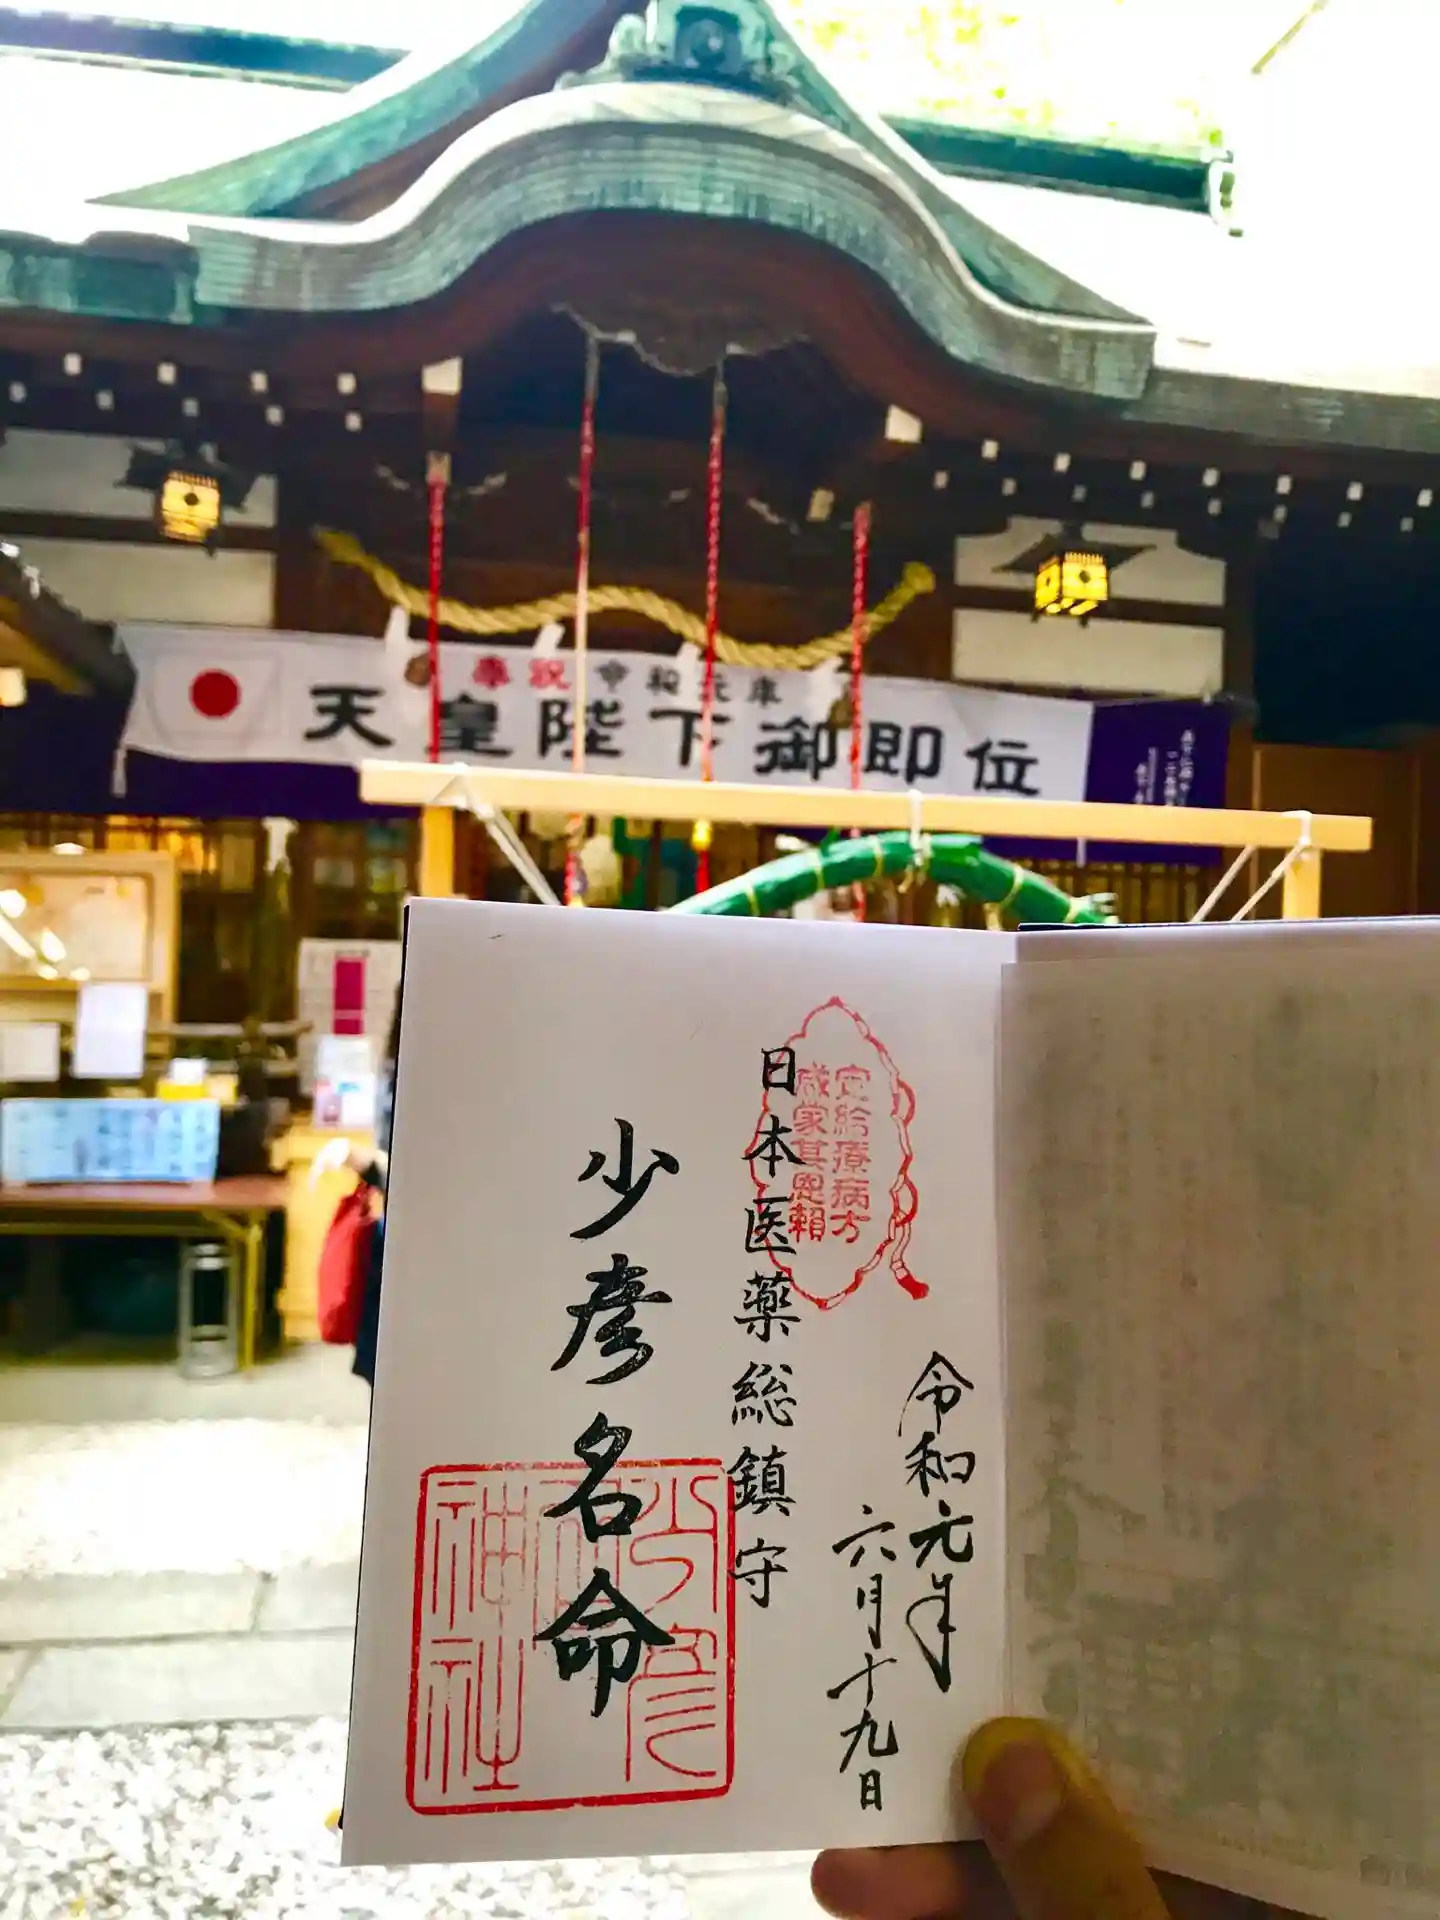 奉祝 令和元年
天皇陛下御即位
令和元年
六月十九日
定給療病方
咸蒙其恩頼
日本医薬総鎮守
少彦名命
少彦
名
神社